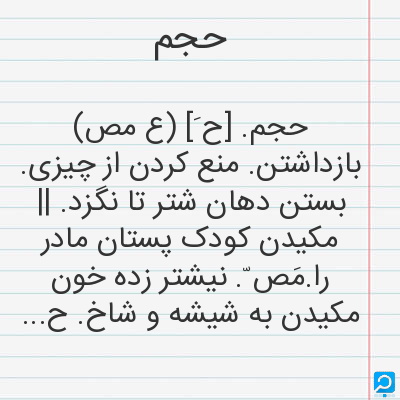 حجم
حجم. [حَ] (ع مص)
بازداشتن. منع کردن از چیزی.
بستن دهان شتر تا نگزد. ||
مکیدن کودک پستان مادر
را.مَص ّ. نیشتر زده خون
مکیدن به شیشه و شاخ. ح...